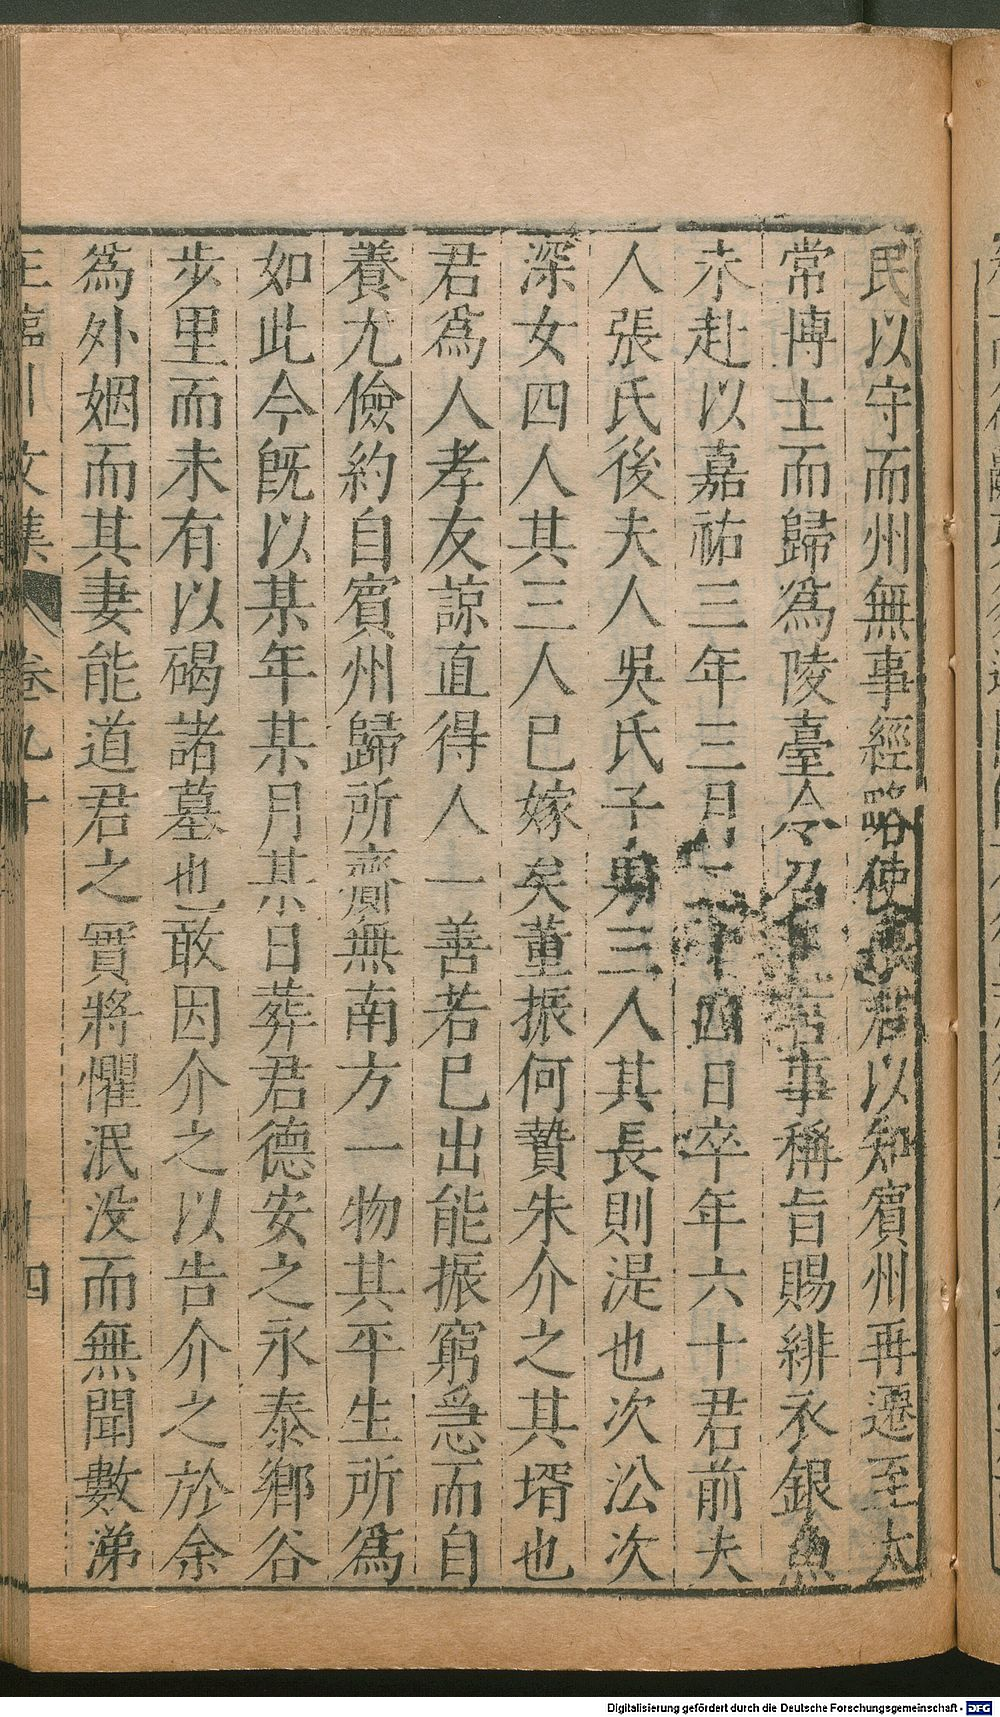 民以守而州無事經略使以君以知賓州再遷至太
常博士而歸爲陵臺令召言事稱旨賜緋衣銀魚
未赴以嘉祐三年三月二十四日卒年六十君前夫
人張氏後夫人吳氏子男三人其長則湜也次㳂次
深女四人其三人已嫁矣董振何贄朱介之其壻也
君爲人孝友諒直得人一善若已出能振窮急而自
養尤儉約自賓州歸所齎無南方一物其平生所爲
如此今旣以某年某月某日葬君德安之永泰鄉谷
步里而未有以碣諸墓也敢因介之以告介之於余
爲外姻而其妻能道君之實將懼泯没而無聞數涕
王臨川文集 卷九十 十四
Digitalisierung gefördert durch die Deutsche Forschungsgemeinschaft - DFG